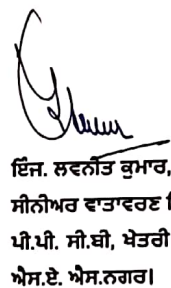 ਇੰਜ. ਲਵਨੀਤ ਕੁਮਾਰ,
ਸੀਨੀਅਰ ਵਾਤਾਵਰਣ
ਪੀ.ਪੀ. ਸੀ.ਬੀ, ਖੇਤਰੀ
ਐਸ.ਏ. ਐਸ.ਨਗਰ।